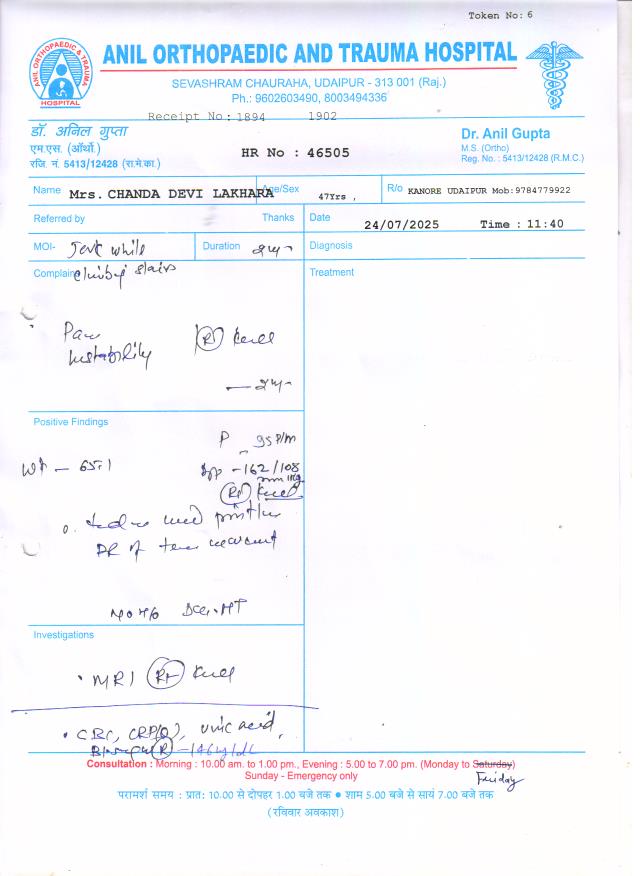 Token No: 6
ANIL ORTHOPAEDIC AND TRAUMA HOSPITAL
ANIL ORTHOPAEDIC & TRAUMA HOSPITAL
SEVASHRAM CHAURAHA, UDAIPUR - 313 001 (Raj.)
Ph.: 9602603490, 8003494336
Receipt No: 1894 1902
डॉ. अनिल गुप्ता
एम.एस. (ऑर्थो.)
रजि. नं. 5413/12428 (रा.मे.का.)
HR No : 46505
Dr. Anil Gupta
M.S. (Ortho)
Reg. No. : 5413/12428 (R.M.C.)
Name Mrs. CHANDA DEVI LAKHARA Age/Sex 47Yrs , R/o KANORE UDAIPUR Mob:9784779922
Referred by Thanks Date 24/07/2025 Time : 11:40
MOI- while Duration Diagnosis
Complain stairs Treatment
Pain (R) knee
Instability
Positive Findings
P 95 P/m
Wt - 65.1 Bp -162/108
mmHg
(Rt) knee
Investigations
• MRI (Rt) knee
• CBC, CRP(Q), Uric acid,
(R) -146
Consultation : Morning : 10.00 am. to 1.00 pm., Evening : 5.00 to 7.00 pm. (Monday to Saturday)
Friday
Sunday - Emergency only
परामर्श समय : प्रात: 10.00 से दोपहर 1.00 बजे तक ● शाम 5.00 बजे से सायं 7.00 बजे तक
(रविवार अवकाश)